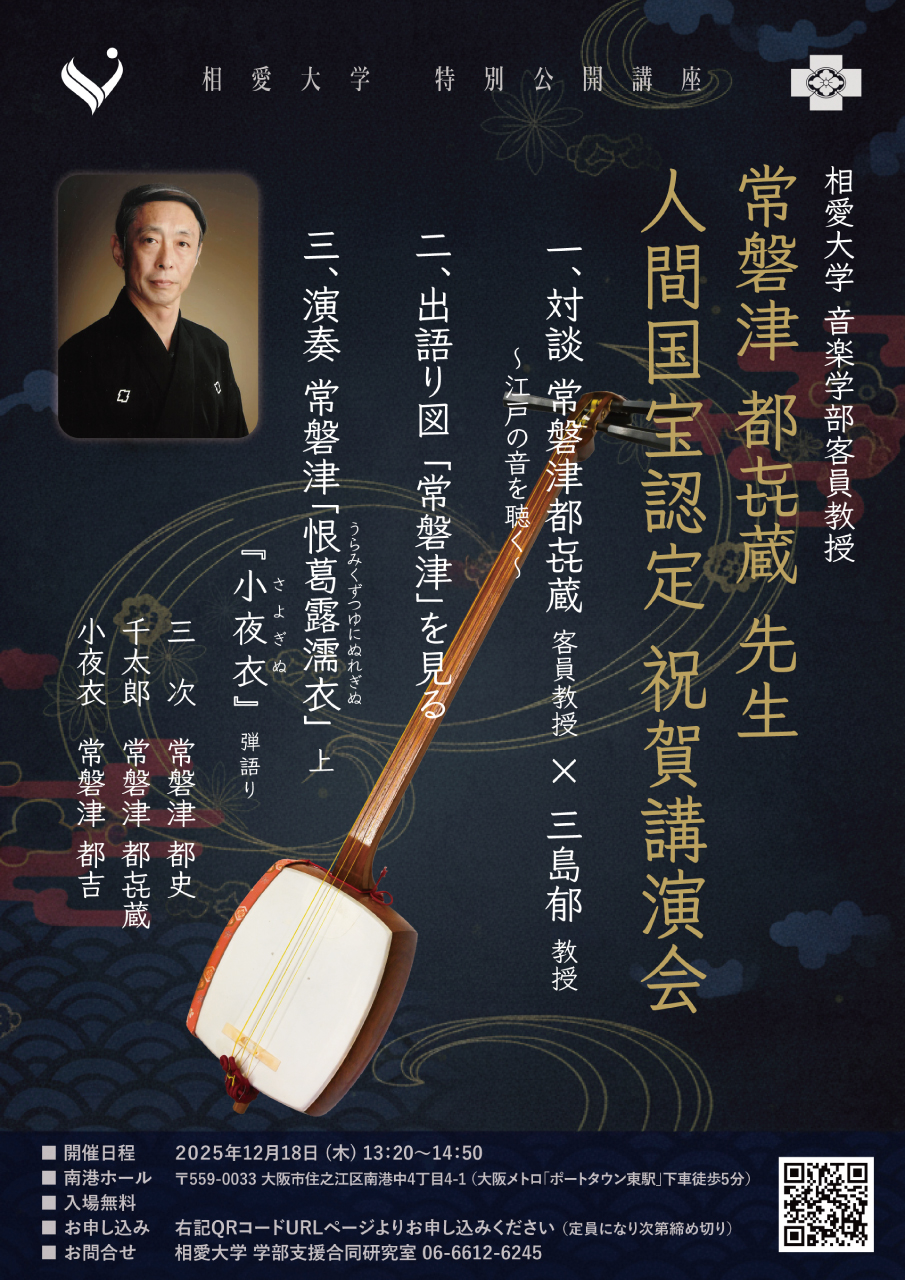 相愛大学　特別公開講座
相愛大学 音楽学部客員教授
常磐津 都㐂蔵 先生
人間国宝認定 祝賀講演会
一、対談 常磐津都㐂蔵 客員教授 × 三島郁 教授
～江戸の音を聴く～
二、出語り図「常磐津」を見る
三、演奏 常磐津「恨葛露濡衣」上
うらみくずつゆにぬれぎぬ
『小夜衣』弾語り
さよぎぬ
三　次　常磐津 都史
千太郎　常磐津 都㐂蔵
小夜衣　常磐津 都吉
■ 開催日程　2025年12月18日（木）13:20～14:50
■ 南港ホール　〒559-0033 大阪市住之江区南港中4丁目4-1（大阪メトロ「ポートタウン東駅」下車徒歩5分）
■ 入場無料
■ お申し込み　右記QRコードURLページよりお申し込みください（定員になり次第締め切り）
■ お問合せ　相愛大学 学部支援合同研究室 06-6612-6245